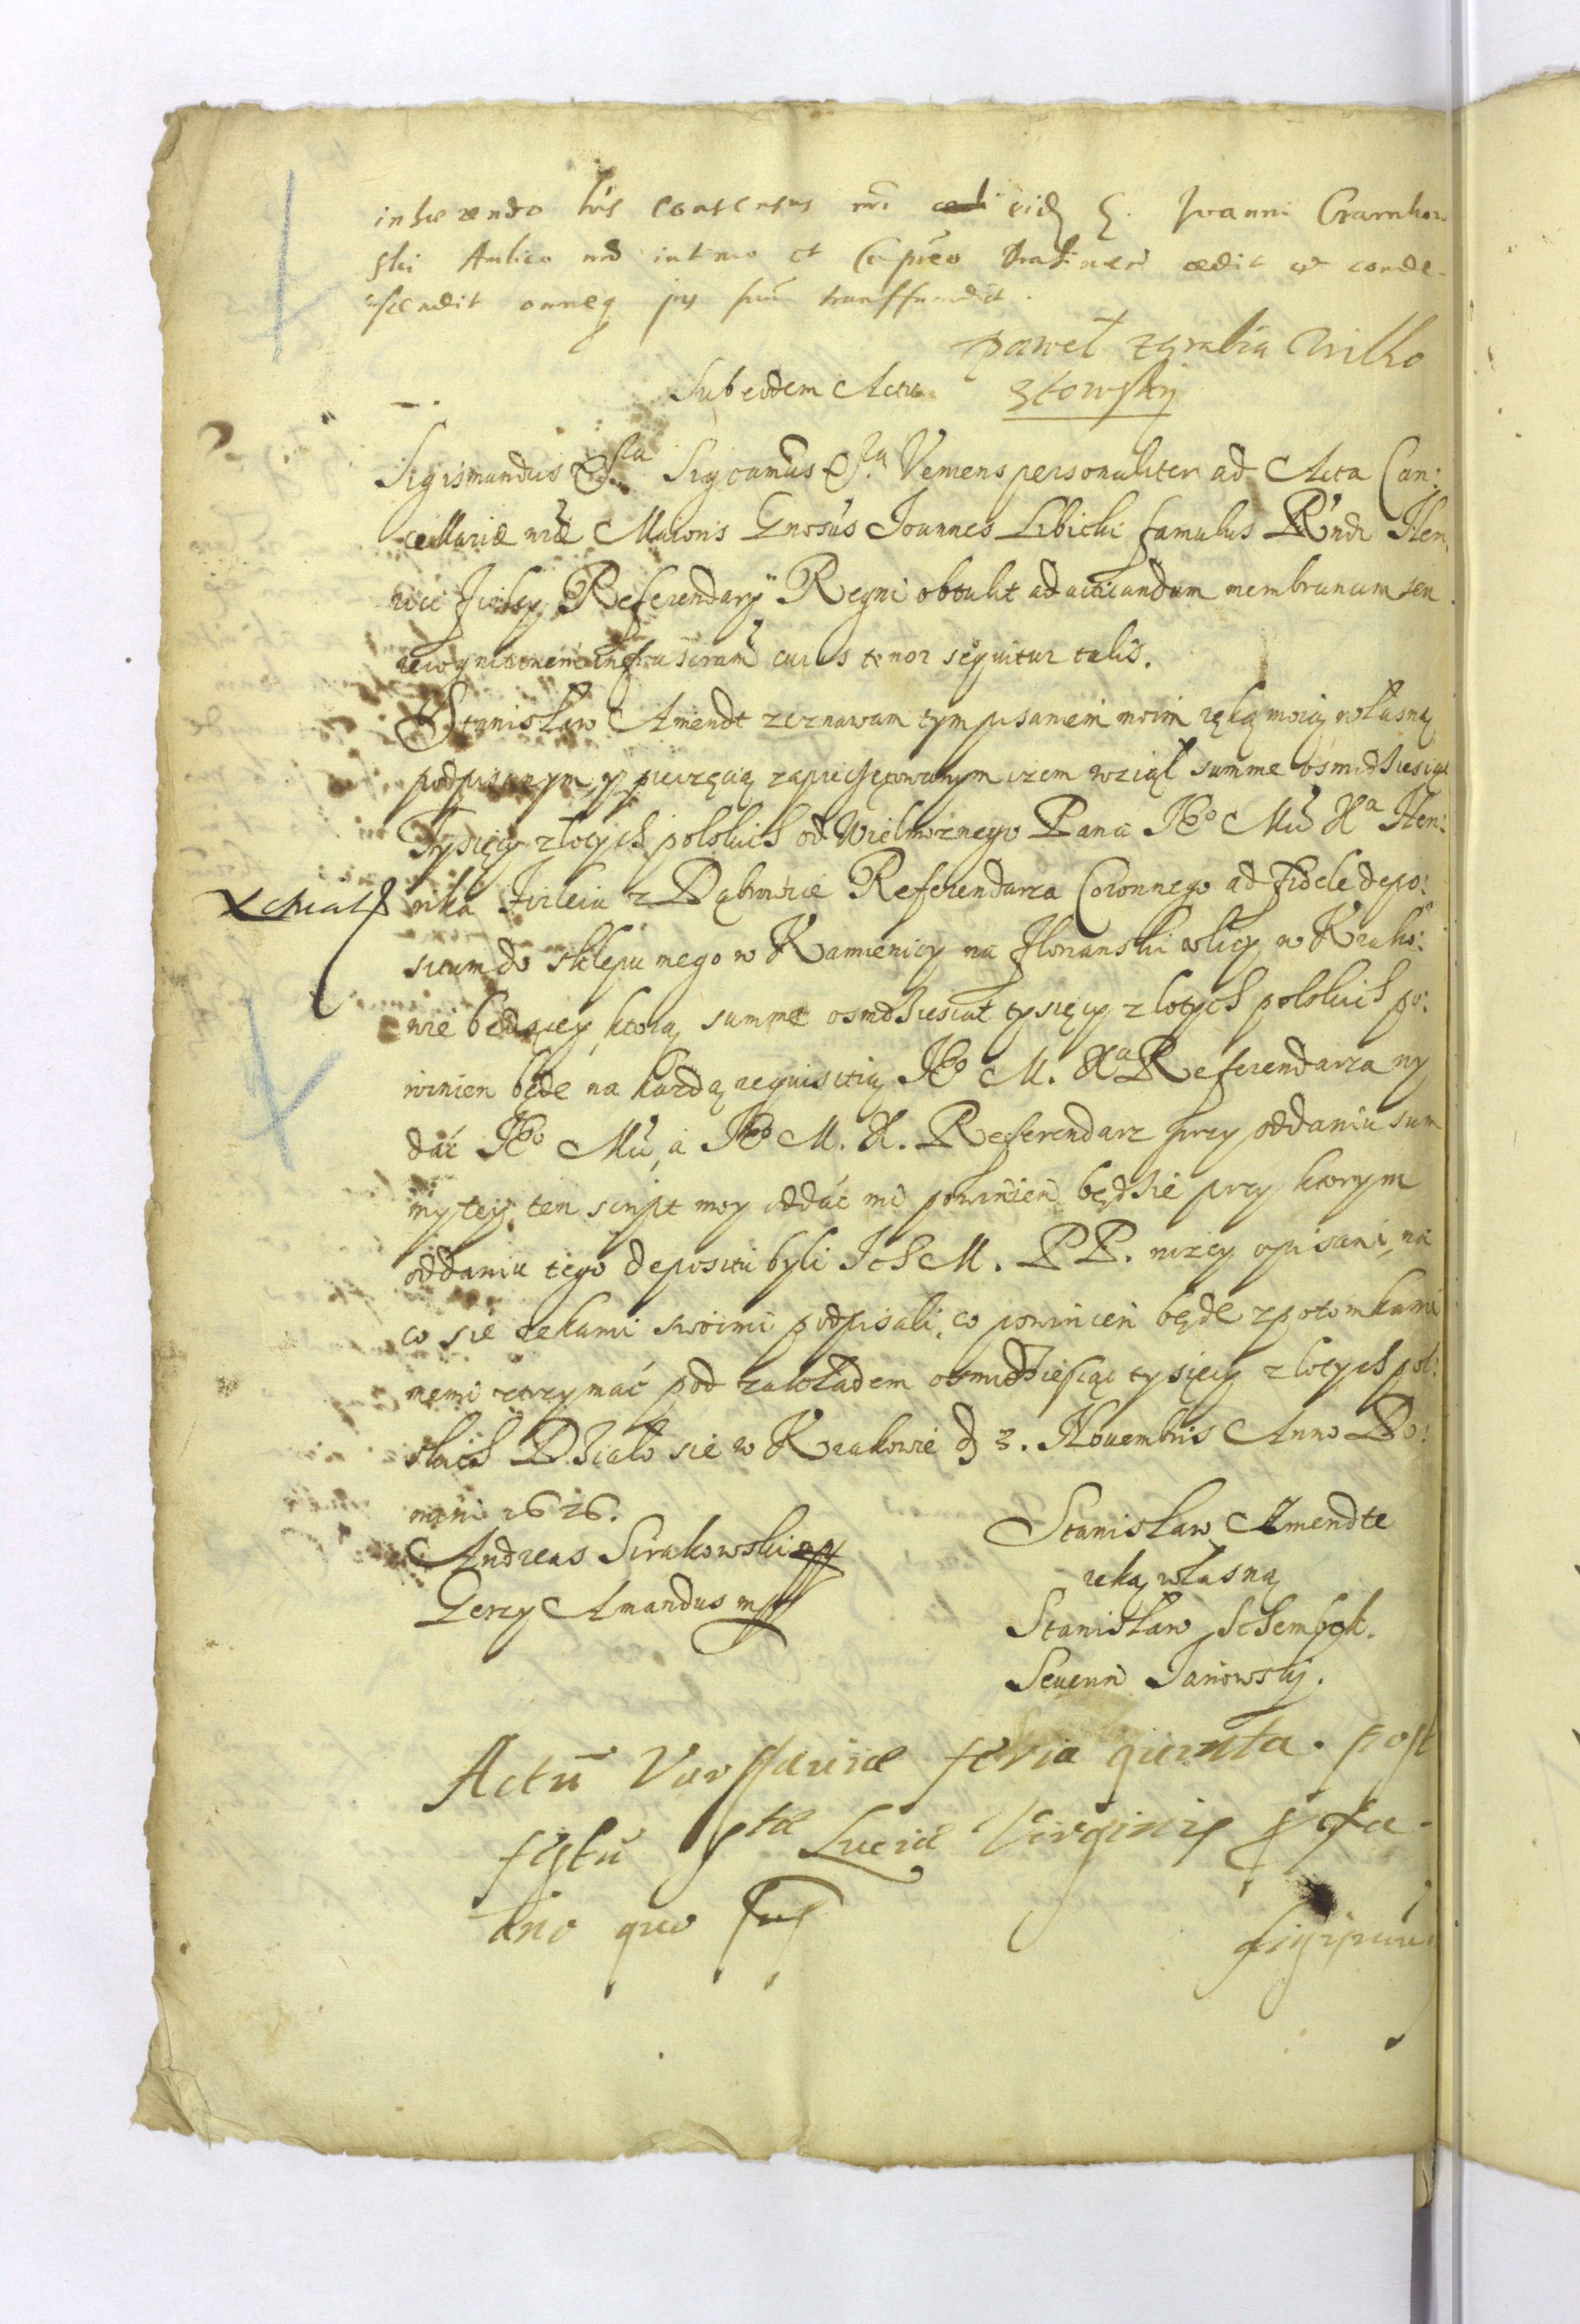 inhærendo his consensus nri eid G. Joanni Czarnkow
ski Aulico nrō intimo et Capneo cedit et conde-
scendit omneq jus suū transfundit.
Paweł zęmbia Wilko
Sub eodem Actu. złowskij
Sigismundus &ca Sigcamus &ca. Veniens personaliter ad Acta Can:
cellariæ nræ Maioris Gnosus Joannes Libicki famulus R'ndi Hen
rici Firley Referendarÿ Regni obtulit ad acticandum membranam seu
recognitionem infra scram cuius tenor sequitur talis.
Stanisław Amendt zeznawam tym pisaniem moim ręką moią własną
podpisanym y pieczęcią zapieczętowanym iżem wziął summe ośmdziesiąt
Tysięcy złotych polskich od Wielmoznego Pana JEo Mci Xa Hen:
rika Firleia z Dąbrowice Referendarza Coronnego ad fidele depo:
situm do sklepu mego w Kamienicy na Floriański vlicy w Krako:
wie będącey, ktorą summe osmdziesiat tysięcy złotych polskich po:
winien będe na kazdą requisitią JEo M. Xa Referendarza wy
dać JEo Mci, a JEo M. X. Referendarz przy oddaniu sum
my tey, ten script moy oddać mi powinien będzie przy ktorym
oddaniu tego depositu byli Ich M. PP. nizey opisani, na
co sie rekami swoimi podpisali, co powinien będe z potomkami
memi ztrzymać pod zakładem osmdziesiąt tysięcy złotych pol:
skich Działo sie w Krakowie d 3. Nouembris Anno Do:
mini 1626.
Andreas Sirakowski mpp Stanisław Amendte
Gerzy Amandus mpp reką własną
Stanisław Schembek.
Seuerin Janowskij.
Actū Varssauiæ feria quinta post
festū Stæ Luciæ Virginis
Ano quo sus